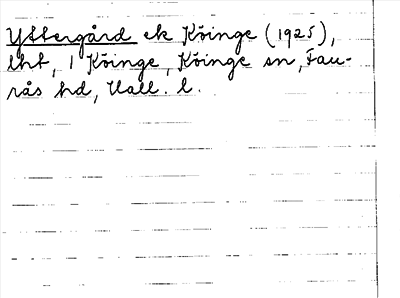 Yttergård ek Köinge (1925),
lht, 1 Köinge, Köinge sn, Fau-
rås hd, Hall. l.